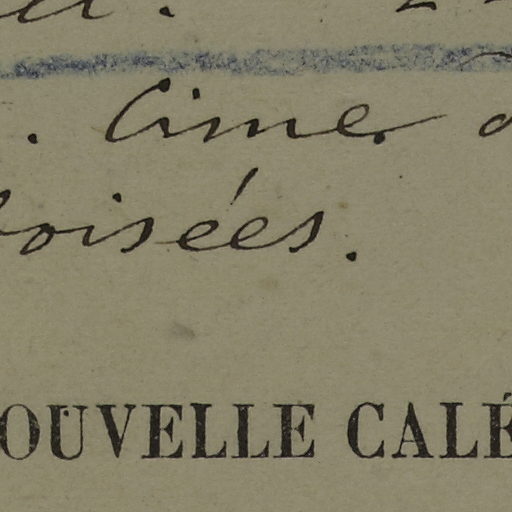 . Cimes
boisées.
OUVELLE CALÉ